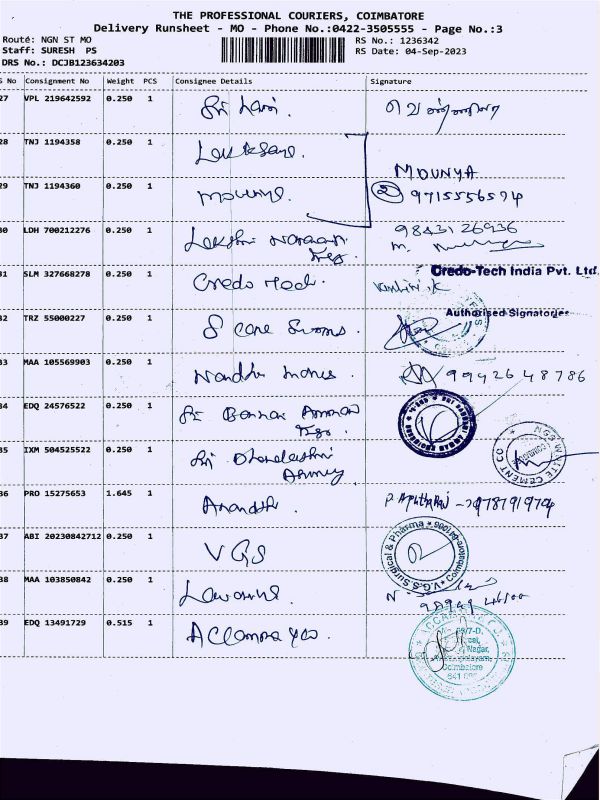 THE PROFESSIONAL COURIERS, COIMBATORE
Delivery Runsheet - MO - Phone No.:0422-3505555 - Page No.:3
Route: NGN ST MO
RS No.: 1236342
Staff: SURESH PS
RS Date: 04-Sep-2023
DRS No.: DCJB123634203
S No Consignment No Weight PCS Consignee Details Signature
27 VPL 219642592 0.250 1 Sri Hari. வெண்ணிலா
28 TNJ 1194358 0.250 1
29 TNJ 1194360 0.250 1 Mounya.
MOUNYA
② 9715556574
30 LDH 700212276 0.250 1 Lakshmi Narayan
9843126936
31 SLM 327668278 0.250 1 Credo Tech.
Credo-Tech India Pvt. Ltd.
Authorised Signatories
32 TRZ 55000227 0.250 1 8 Care
33 MAA 105569903 0.250 1 Nandhi 9942648786
34 EDQ 24576522 0.250 1 Sri Bannari Amman
35 IXM 504525522 0.250 1 Sri Dhanalakshmi
NGR WHITE CEMENT CO
36 PRO 15275653 1.645 1 Anandhi. 9787919704
37 ABI 20230842712 0.250 1 VGS
V.G.S Surgical & Pharma
Coimbatore
38 MAA 103850842 0.250 1 Lavanya.
39 EDQ 13491729 0.515 1
Nagar,
Coimbatore